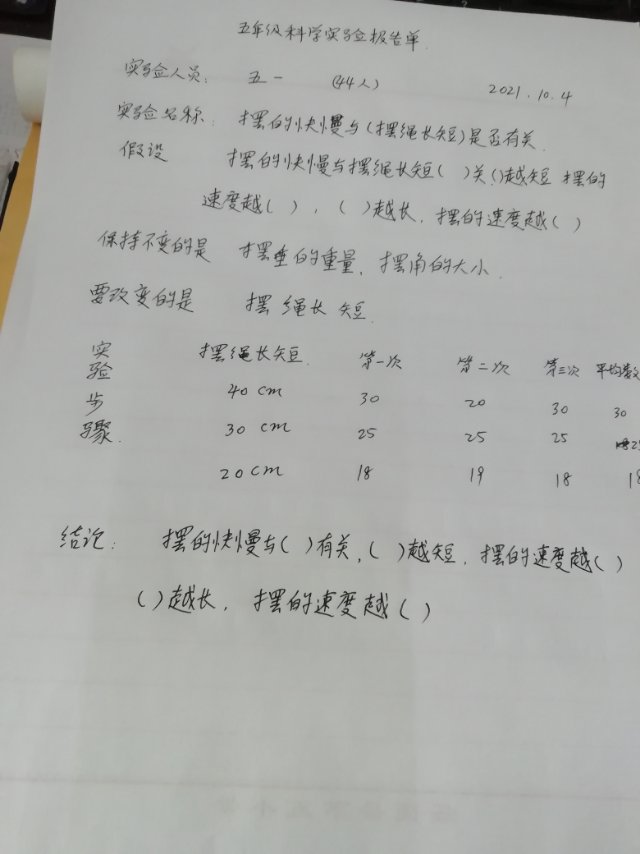 五年级科学实验报告单.
实验人员: 五一 (44人) 2021.10.4
实验名称: 摆的快慢与(摆绳长短)是否有关.
假设 摆的快慢与摆绳长短( )关()越短 摆的
速度越( ), ( )越长, 摆的速度越( )
保持不变的是 摆锤的重量, 摆角的大小.
要改变的是 摆绳长短.
实验步骤. 摆绳长短. 第一次 第二次 第三次 平均数
40cm 30 20 30 30
30cm 25 25 25 25
20cm 18 19 18 18
结论: 摆的快慢与( )有关, ( )越短, 摆的速度越( )
( )越长, 摆的速度越( )